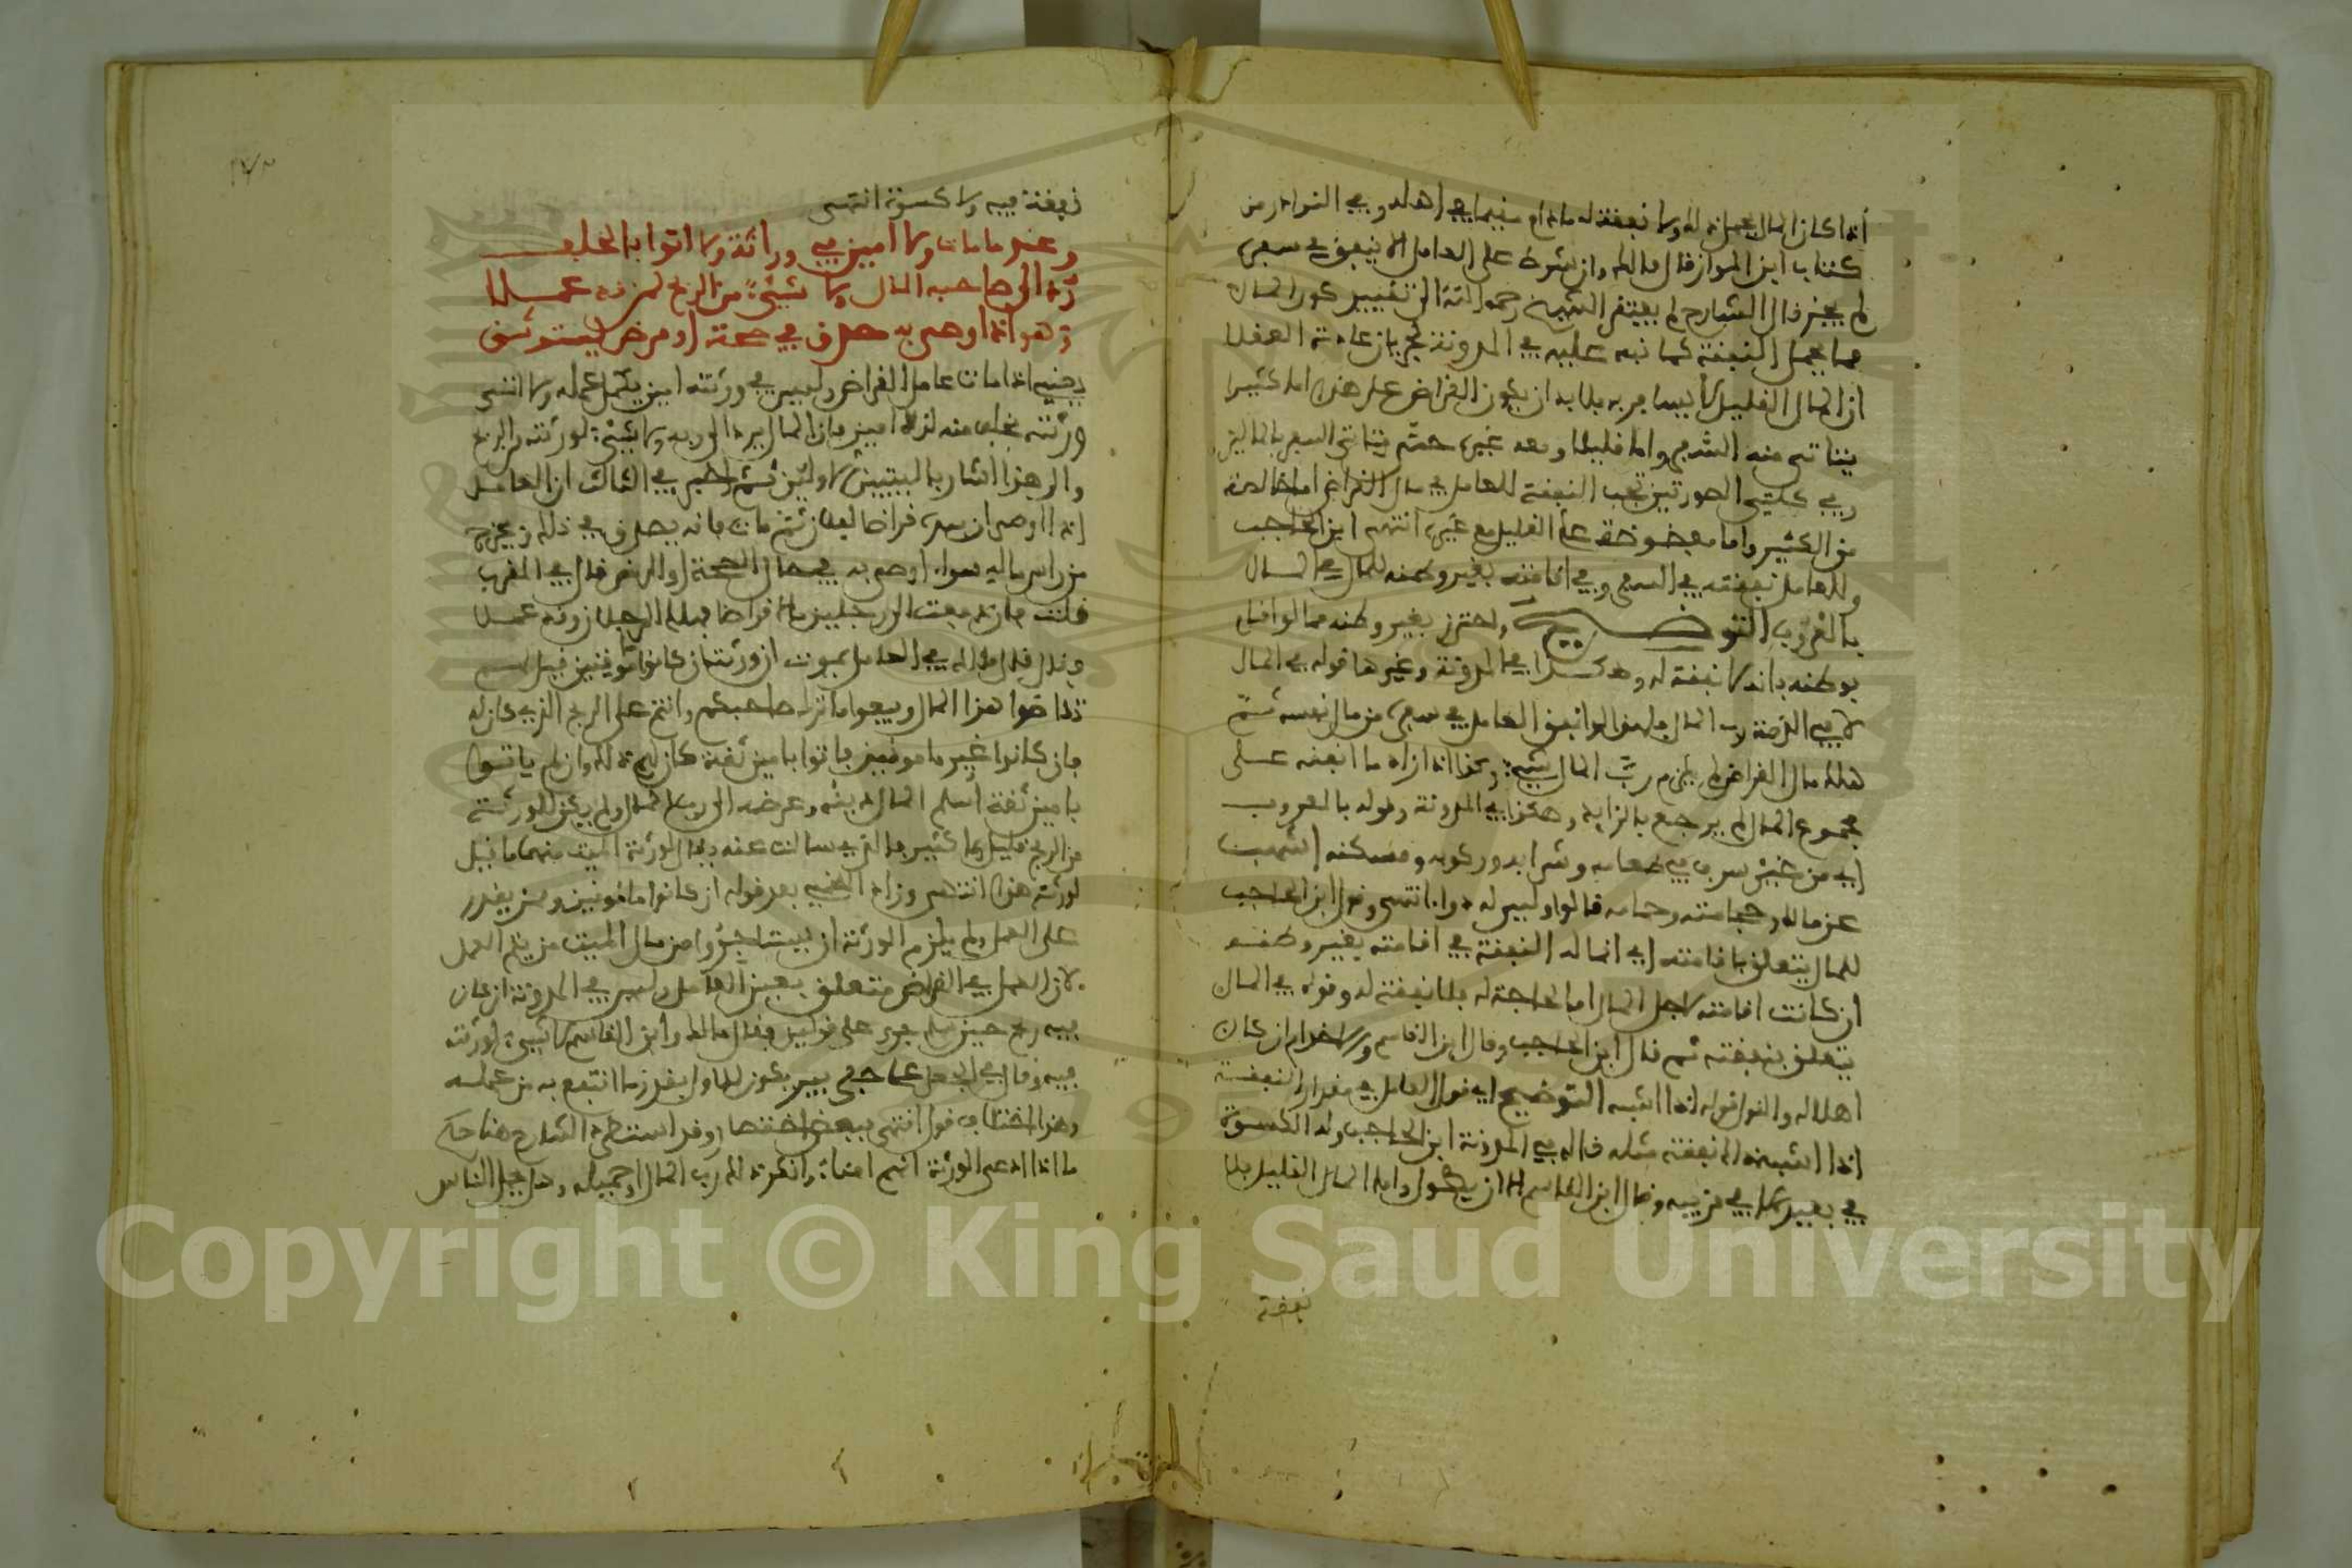 إذا كان المال يحمل ذلك ولا نفقة له ما دام مقيما في أهله وفي النوادر من
كتاب ابن المواز قال مالك وان شرط على العامل الا ينفق في سفره
لم يجز قال الشارح لم يفتقر الشيخ رحمه الله الى تقييد كون المال
مما يحمل النفقة كما نبه عليه في المدونة لجريان عادة العقلا
ان المال القليل لا يسافر به فلا بد ان يكون القراض على هذا اما كثيرا
يتاتى منه السفر واما قليلا ومعه غيره حتى يتاتى السفر بالمالين
وفي كلتي الصورتين تجب النفقة للعامل في مال القراض اما خالصة
من الكثير واما مفضوضة على القليل مع غيره انتهى ابن الحاجب
وللعامل نفقته في السفر وفي اقامته بغير وطنه للمال في المال
بالمعروف التوضيح واحترز بغير وطنه مما لو اقام
بوطنه فانه لا نفقة له وهكذا في المدونة وغيرها قوله في المال
لا في الذمة رب المال فلهذا لو انفق العامل في سفره من مال نفسه ثم
هلك مال القراض لم يلزم رب المال شيء وكذا اذا زاد ما انفقه على
مجموع المال لم يرجع بالزايد وهكذا في المدونة وقوله بالمعروف
اي من غير سرف في طعامه وشرابه وركوبه ومسكنه اشهب
عن مالك وحجامته وحمامه قالوا وليس له دواء انتهى وقول ابن الحاجب
للمال يتعلق باقامته اي انما له النفقة في اقامته بغير وطنه
ان كانت اقامته لاجل المال اما لحاجة له فلا نفقة له وقوله في المال
يتعلق بنفقته ثم قال ابن الحاجب وقال ابن القاسم ولا خدام ان كان
اهلا له والقول قوله اذا اشبه التوضيح اي قول العامل في مقدار النفقة
اذا اشبهت نفقة مثله قاله في المدونة ابن الحاجب وله الكسوة
في بعيد لا في قريبه وقال ابن القاسم الا ان يطول واما المال القليل فلا
نفقة
نفقة فيه ولا كسوة انتهى
وعند ما مات ولا امين في وراثه ولا اتوا بالخلف
رد الى صاحبه المال ولا شيء من الربح لمن قد عملا
وهو اذا اوصى به مصدق في صحة او مرض يستوثق
يعني اذا مات عامل القراض وليس في ورثته امين يكمل عمله ولا اتى
ورثته بخلف منه امين فان المال يرد الى ربه ولا شيء لورثته من الربح
والى هذا اشار بالبيتين الاولين ثم اخبر في الثالث ان العامل
اذا اوصى ان بيده قراضا لفلان ثم مات فانه يصدق في ذلك ويخرج
من راس ماله سواء اوصى به في حال الصحة او المرض قال في المقرب
قلت فان دفعت الى رجلين مالا قراضا فهلك الرجلان وقد عملا
فقال قال مالك في العامل يموت ان ورثته ان كانوا موثقين قيل لهم
تقاضوا هذا المال وبيعوا ما ترك صاحبكم وانتم على الربح الذي كان له
فان كانوا غير مامونين فاتوا بامين ثقة كان لهم ذلك وان لم ياتوا
بامين ثقة أسلم المال دينه وعرضه الى رب المال ولم يكن للورثة
من الربح قليل ولا كثير فالذي سالت عنه يقال لورثة الميت منهما ما قيل
لورثة هذا انتهى وزاد اللخمي بعد قوله ان كانوا مامونين وممن يقدر
على العمل ولم يلزم الورثة ان يستاجروا من مال الميت من يتم العمل
لان العمل في القراض متعلق بعين العامل وليس في المدونة ان كان
فيه ربح حين سلم جرى على قولين فقال مالك وابن القاسم لا شيء لورثته
فيه وقال في الجعل على حفر بير يكون للاول بقدر ما انتفع به من عمله
وهذا اختلاف قول انتهى ببعض اختصار وقد استطرد الشارح هنا حكم
ما اذا ادعى الورثة انهم امناء وانكر ذلك رب المال او جهله وهل يحمل الناس